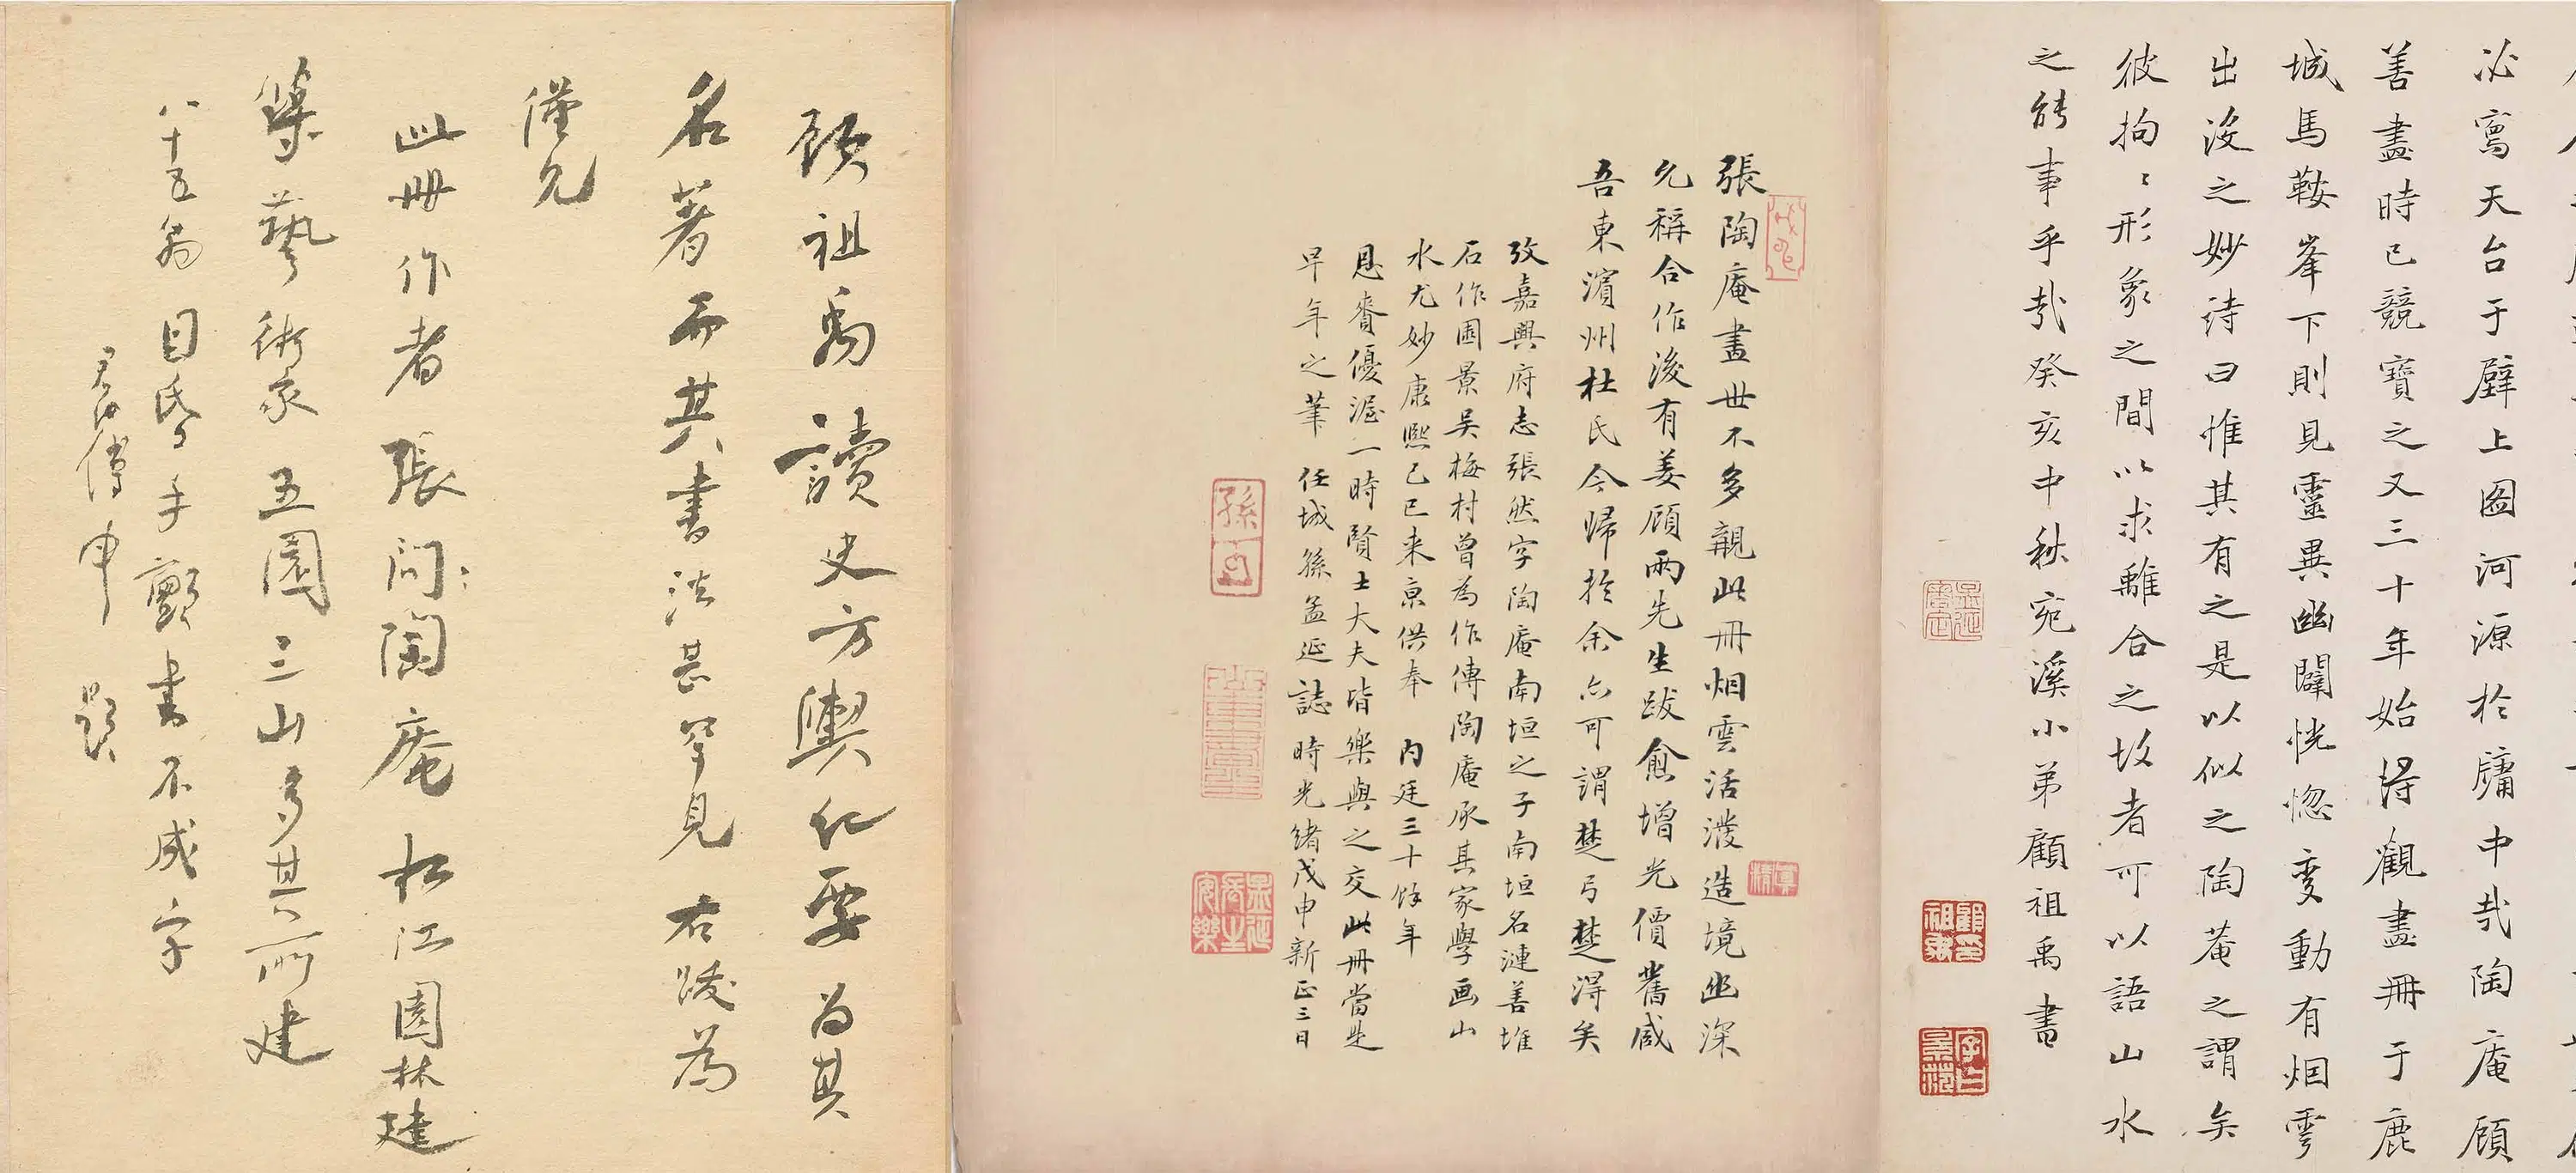 必寫天台于壁上圖河源於牖中哉陶庵顧
善畫時已競寶之又三十年始得觀畫冊于鹿
城馬鞍峯下則見靈異幽闢恍惚变動有烟雲
出沒之妙詩曰惟其有之是以似之陶菴之謂矣
彼拘〻形象之間以求離合之故者可以語山水
之能事乎哉癸亥中秋宛溪小弟顧祖禹書
顧印祖禹
字曰景范
張陶庵畫世不多親此冊烟雲活潑造境幽深
允稱合作後有姜顧兩先生跋愈增光價舊咸
吾東濱州杜氏今歸於余亦可謂楚弓楚得矣
攷嘉興府志張然字陶庵南垣之子南垣名漣善堆
石作園景吴梅村曾為作傳陶庵承其家學画山
水尤妙康熙己巳来京供奉 內廷三十餘年
恩賚優渥一時賢士大夫皆樂與之交此冊當是
早年之筆 任城孫孟延誌時光緒戊申新正三日
顧祖禹讀史方輿紀要为其
名著而其書法甚罕見右跋為
僅見
此冊作者張然陶庵松江園林建
築藝術家 五園三山多其所建
八十五翁 目昏手顫書不成字
君傅申 題